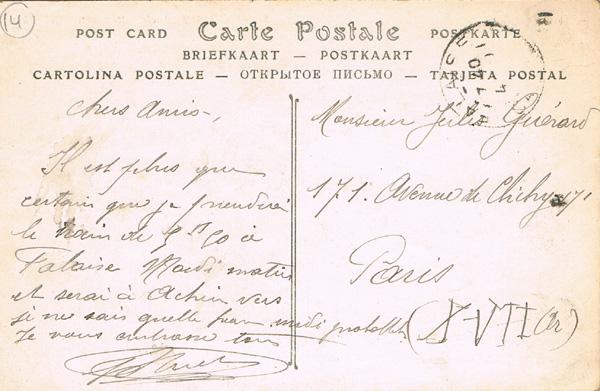 14
Carte Postale
POST CARD POSTKARTE
BRIEFKAART — POSTKAART
CARTOLINA POSTALE — ОТКРЫТОЕ ПИСЬМО — TARJETA POSTAL
chers amis,
Il est plus que
certain que je prendrai
le train de 5 h 50 à
Falaise Mardi matin
et serai à Achères vers
je ne sais quelle heure midi probabl.
Je vous embrasse tous
Monsieur Jules Guérard
171. Avenue de Clichy 171
Paris
(XVII Ar)